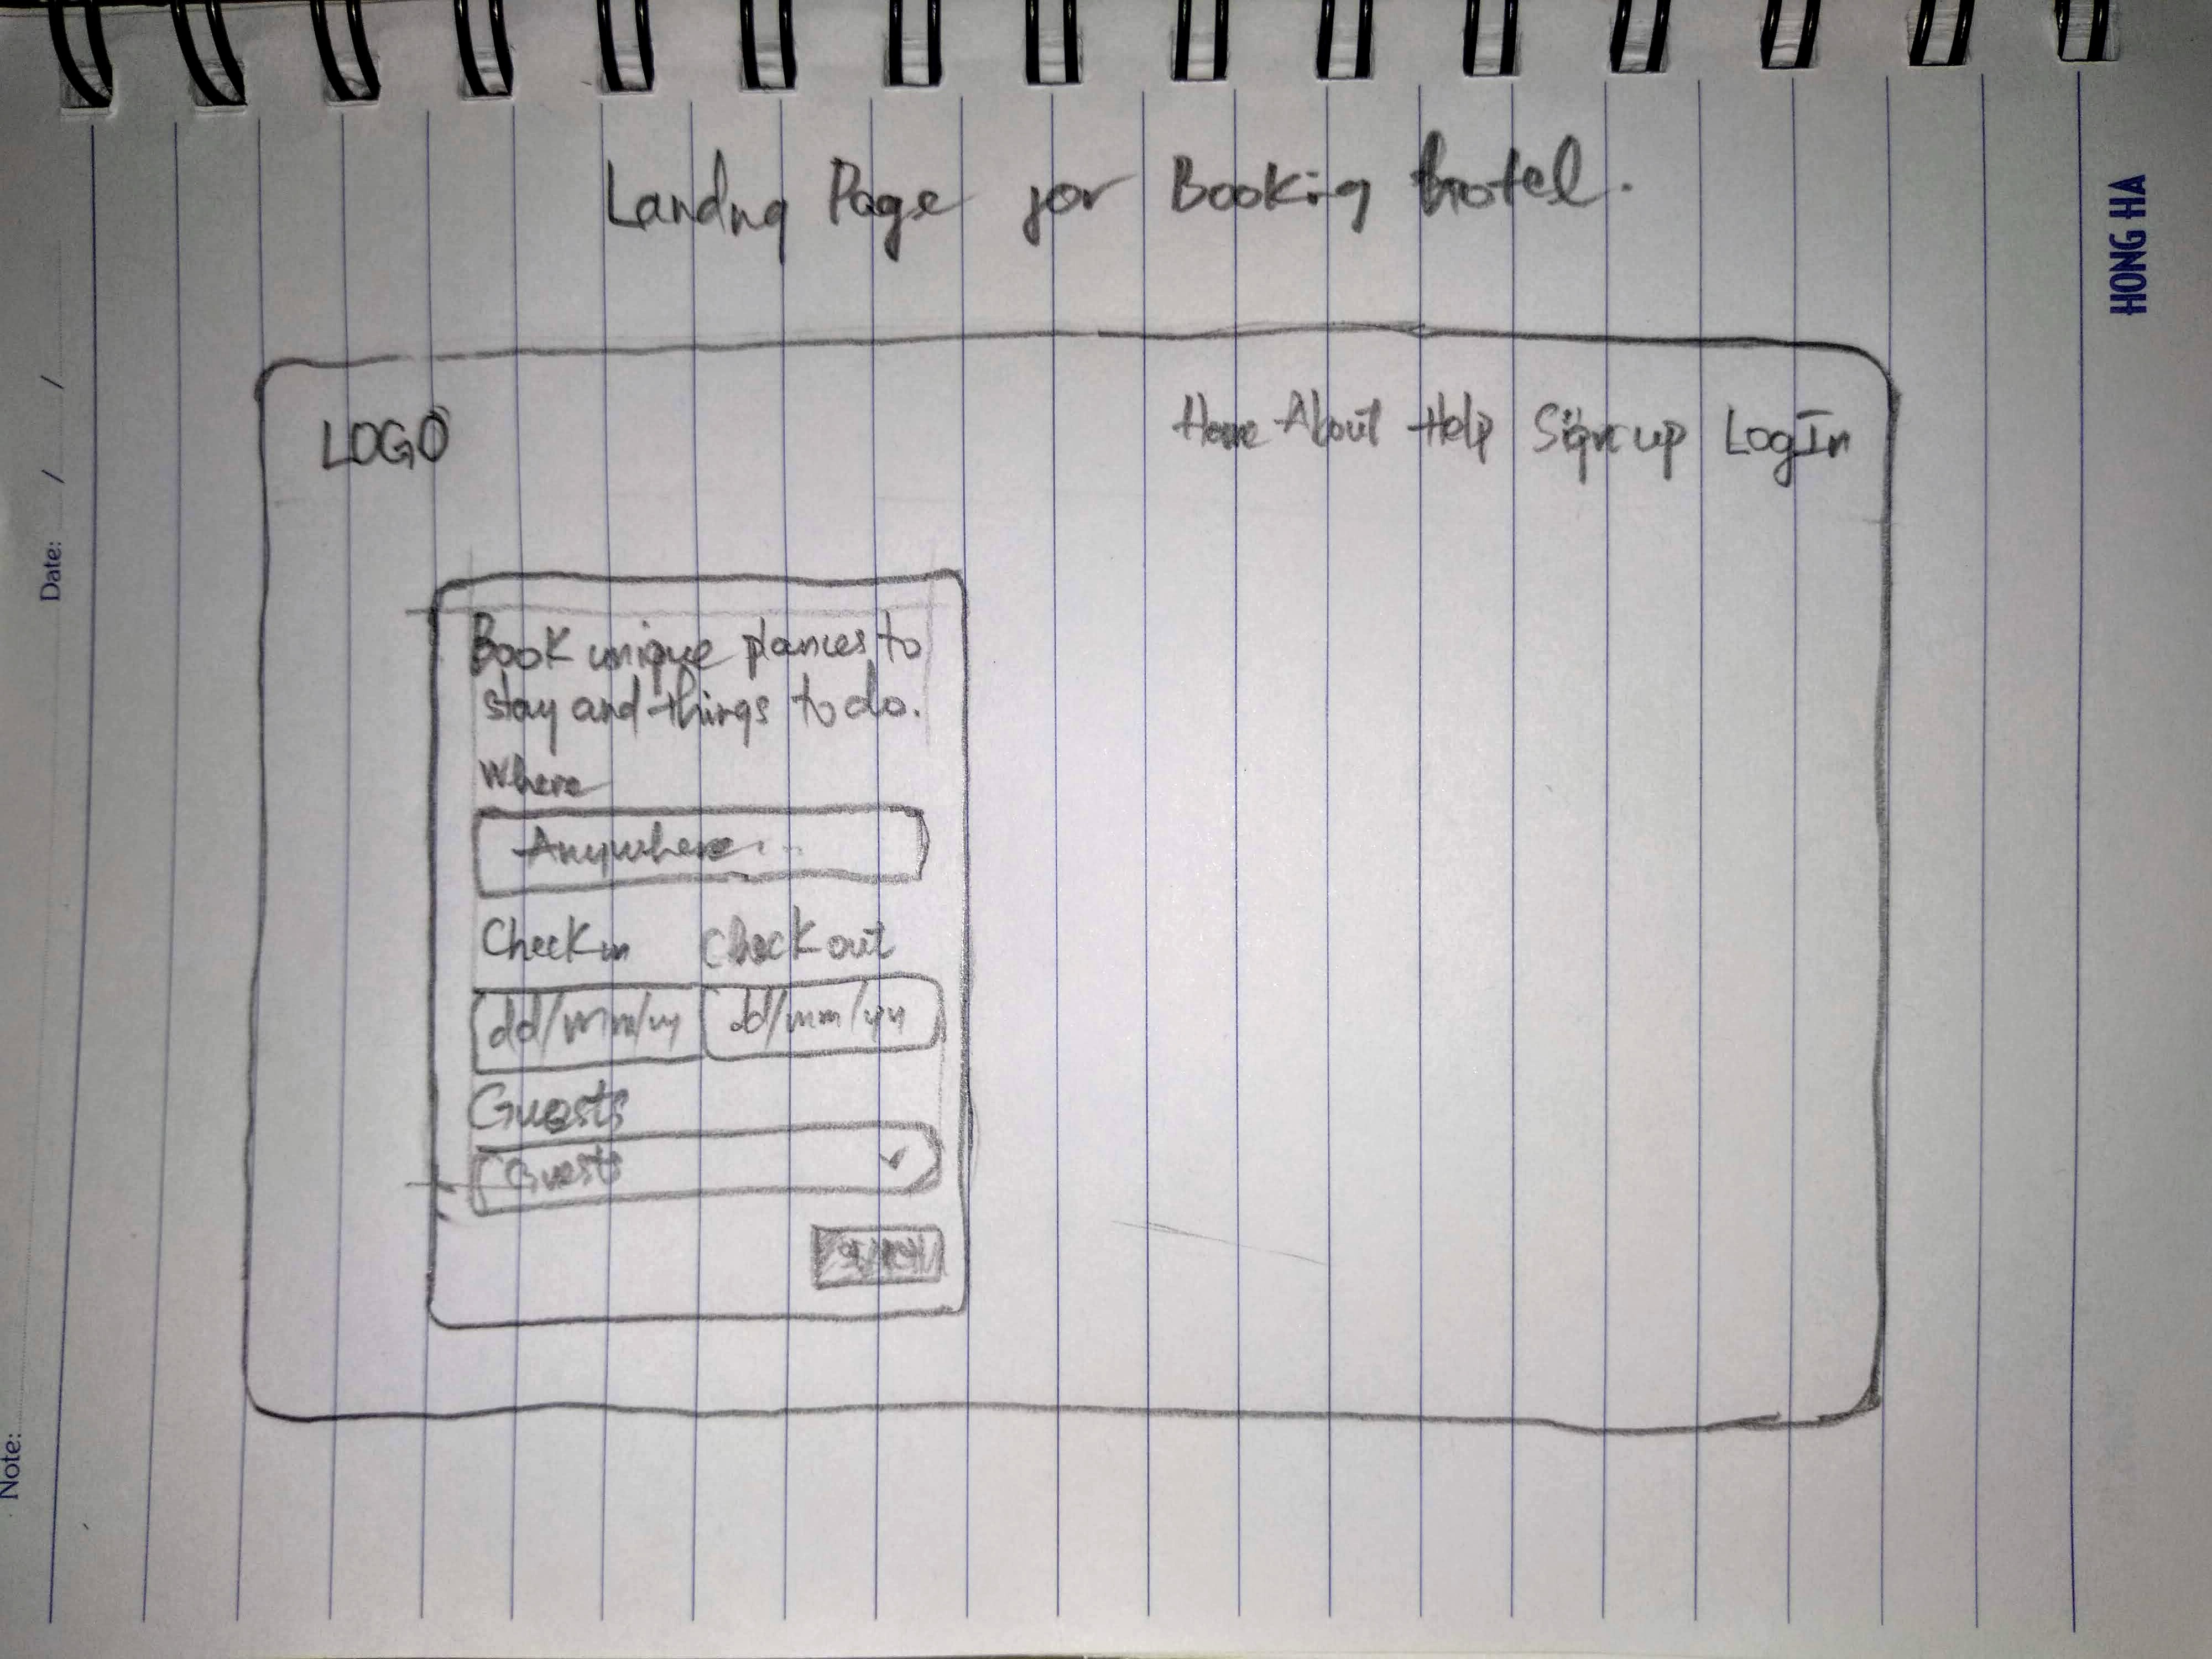 Landng Page for Booking Hotel.
LOGO
Home About Help Sign up LogIn
Book unique plances to
stay and things to do.
Where
Anywhere...
Check in Check out
dd/mm/yy dd/mm/yy
Guests
Guests
HONG HA
Date: / /
Note: